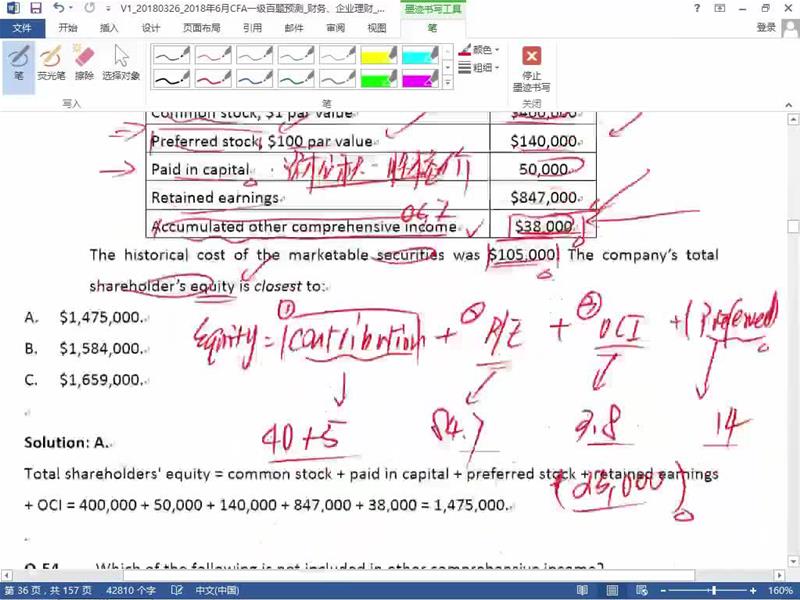 V1_20180326_2018年6月CFA一级百题预测_财务、企业理财_...
墨迹书写工具
登录
文件 开始 插入 设计 页面布局 引用 邮件 审阅 视图 笔
笔 荧光笔 擦除 选择对象
颜色
粗细
停止
墨迹书写
写入 笔 关闭
Common stock, $1 par value $400,000
Preferred stock, $100 par value $140,000
Paid in capital 50,000
Retained earnings $847,000
OCI
Accumulated other comprehensive income $38,000
The historical cost of the marketable securities was $105,000. The company's total
shareholder's equity is closest to:
A. $1,475,000.
B. $1,584,000.
C. $1,659,000.
① ② ③
Equity = contribution + R/E + OCI + (Preferred)
40+5 84.7 3.8 14
Solution: A.
Total shareholders' equity = common stock + paid in capital + preferred stock + retained earnings
(25,000)
+ OCI = 400,000 + 50,000 + 140,000 + 847,000 + 38,000 = 1,475,000.
Q-54. Which of the following is not included in other comprehensive income?
第 36 页，共 157 页 42810 个字 中文(中国) 160%